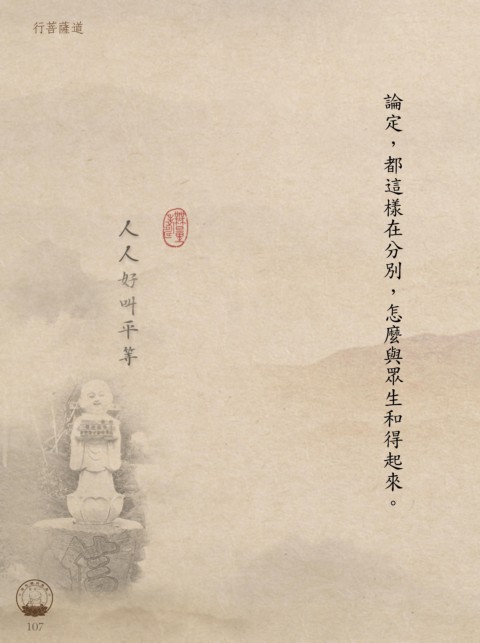 行菩薩道
論定，都這樣在分別，怎麼與眾生和得起來。
人人好叫平等
信
107